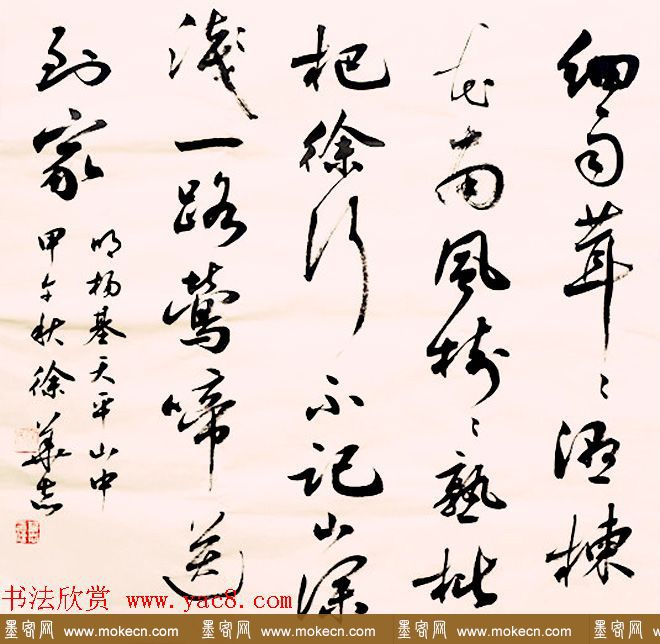 細雨茸〻溼楝
花南風樹〻熟枇
杷徐行不記山深
淺一路鶯啼送
到家
明楊基天平山中
甲午秋徐
书法欣赏 www.yac8.com
墨客网 www.mokecn.com 墨客网 www.mokecn.com 墨客网 www.mokecn.com